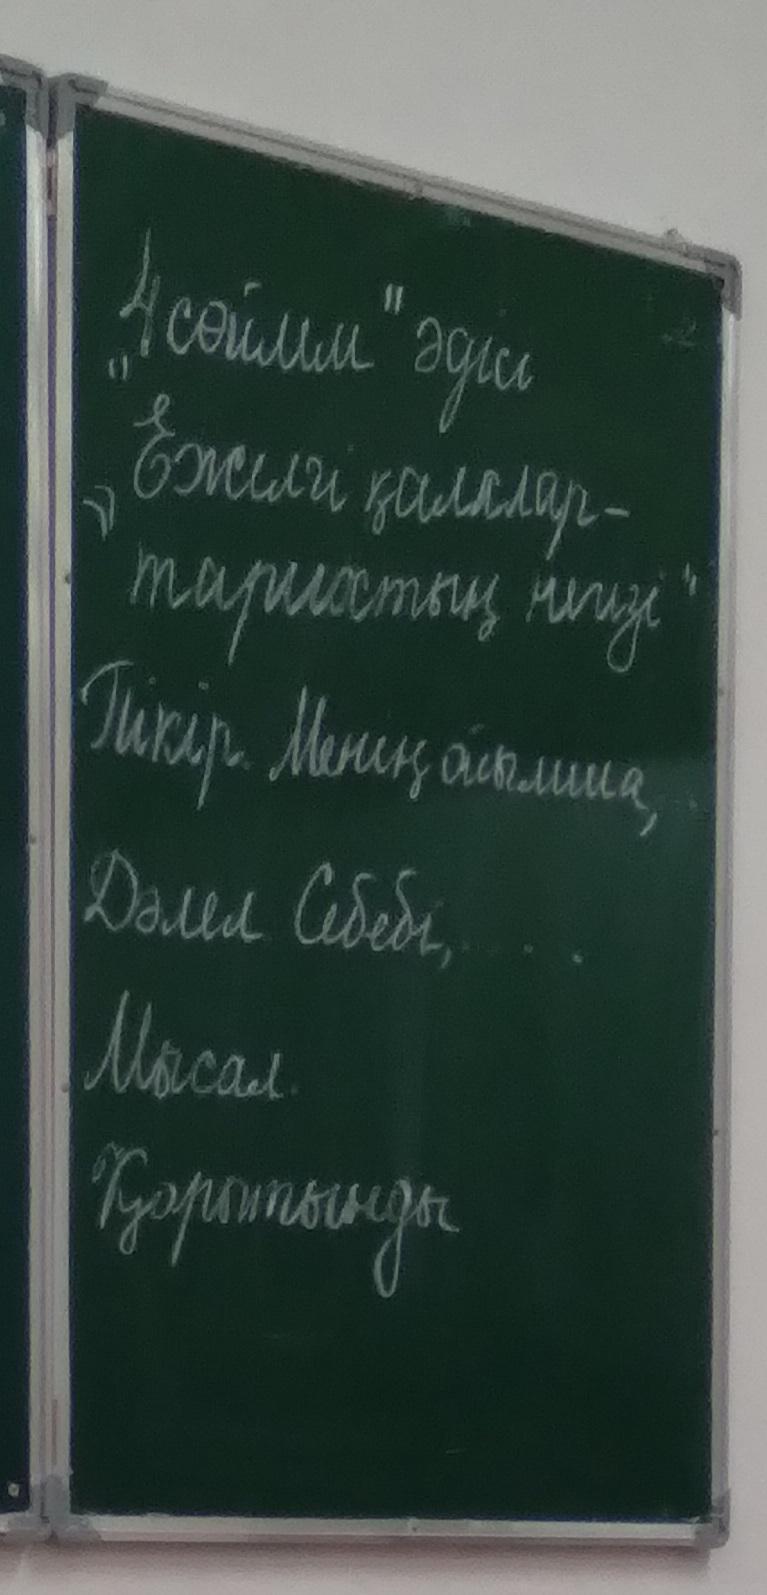 "4 сөйлем" әдісі
"Ежелгі қалалар-
тарихтың негізі"
Пікір. Менің ойымша,
Дәлел Себебі, ....
Мысал.
Қорытынды